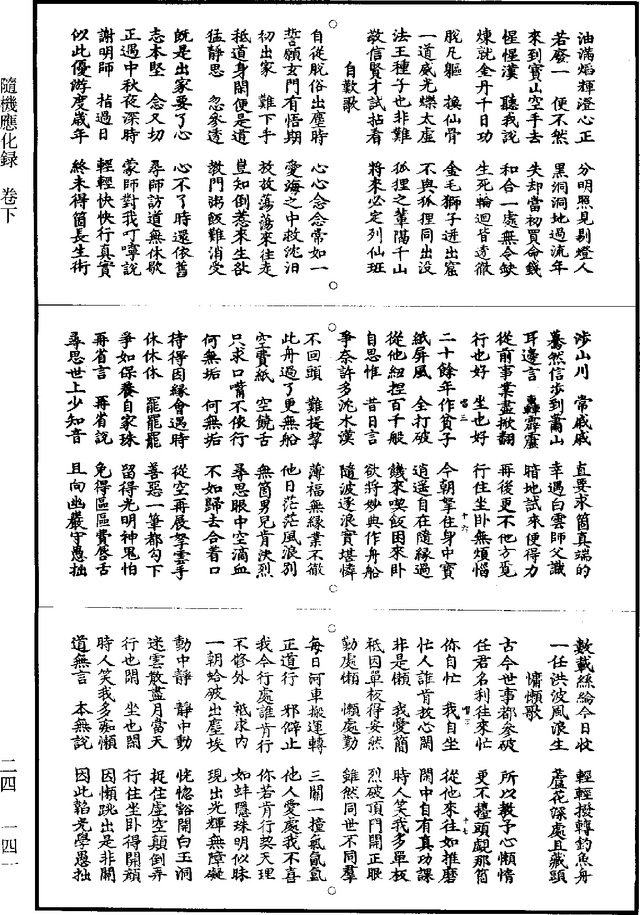 油滿焰輝澄心正　分明照見剔燈人
若廢一　便不然　黑洞洞地過流年
來到寶山空手去　失却當初買命錢
惺惺漢　聽我說　和合一處無令缺
煉就金丹千日功　生死輪迴皆透徹
脫凡軀　換仙骨　金毛獅子迸出窟
一道威光爍太虛　不與狐狸同出沒
法王種子也非難　狐狸之輩隔千山
敬信賢才試拈看　將來必定列仙班
自歎歌
自從脫俗出塵時　心心念念常如一
誓願玄門有悟期　愛海之中救沈汨
初出家　難下手　放放蕩蕩來往走
柢道身閒便是道　豈知倒惹來生欲
猛靜思　忽參透　教門粥飯難消受
既是出家要了心　心不了時還依舊
志本堅　念又切　尋師訪道無休歇
正遇中秋夜深時　蒙師對我叮嚀說
謝明師　拮過日　輕輕快快行真實
似此優游度歲年　終未得箇長生術
涉山川　常戚戚　直要求箇真端的
驀然信步到蕭山　幸遇白雲師父識
耳邊言　轟霹靂　暗地試來便得力
從前事業盡掀翻　再後更不他方覓
行也好　坐也好　行住坐卧無煩惱
二十餘年作貧子　今朝拏住身中寶
紙屏風　全打破　逍遥自在隨緣過
從他紐捏百千般　饑來喫飯困來卧
自思惟　昔日言　欲將妙典作舟船
爭奈許多沈水漢　隨波逐浪實堪憐
不回頭　難提挈　薄福無緣業不徹
此舟過了更無船　他日茫茫風浪別
空費紙　空饒舌　無箇男兒肯決烈
只求口嘴不依行　尋思眼中空滴血
何無垢　何無垢　不如歸去合着口
待得因緣會遇時　從空再展拏雲手
休休休　罷罷罷　善惡一筆都勾下
爭如保養自家珠　留得光明神鬼怕
再省言　再省說　免得區區費唇舌
尋思世上少知音　且向幽巖守愚拙
數載絲綸今日收　輕輕撥轉釣魚舟
一任洪波風浪生　蘆花深處且藏頭
慵懶歌
古今世事都參破　所以教予心懶惰
任君名利往來忙　更不擡頭覷那箇
你自忙　我自坐　從他來往如推磨
忙人誰肯放心閑　閑中自有真功課
非是懶　我愛簡　時人笑我多單板
柢因單板得安然　烈破頂門開正眼
勤處懶　懶處勤　雖然同世不同羣
每日河車搬運轉　三關一撞氣氤氳
正道行　邪僻止　他人愛處我不喜
我今行處誰肯行　你若肯行契天理
不修外　柢求內　如蚌隱珠明似昧
一朝蛤破出塵埃　現出光輝無障礙
動中靜　靜中動　恍惚豁開白玉洞
迷雲散盡月當天　捉住虛空顛倒弄
行也閑　坐也閑　行住坐卧得開頑
時人笑我多癡懶　因懶跳出是非關
道無言　本無說　因此韜光學愚拙
隨機應化録　卷下
二四　一四一